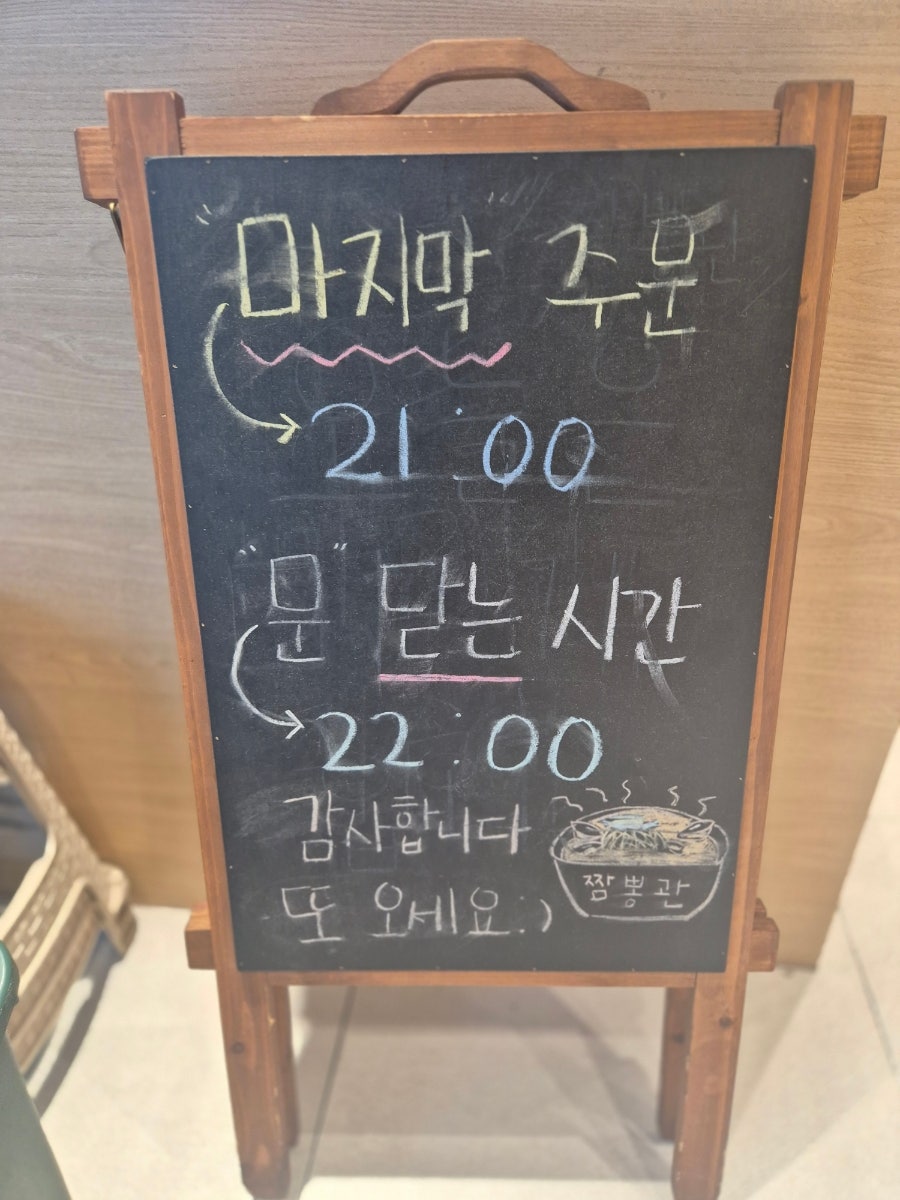 "마지막" 주문
21:00
"문" 닫는 시간
22:00
감사합니다
또 오세요:)
짬뽕관